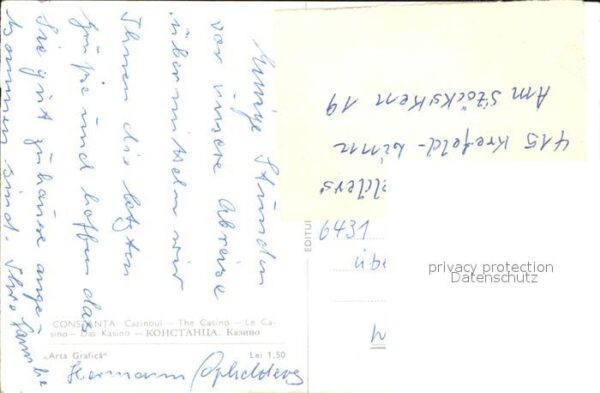 Einige Stunden
vor unsere Abreise
übermitteln wir
Ihnen die letzten
Grüße und hoffen das
Sie gut zuhause ange-
kommen sind. Ihre Familie
Hermann
CONSTANȚA Cazinoul — The Casino — Le Ca-
sino — Das Kasino — КОНСТАНЦА. Казино
„Arta Grafică“ Lei 1,50
EDITUR
415 Krefeld-Linn
Am Stöcksken 19
6431
privacy protection
Datenschutz